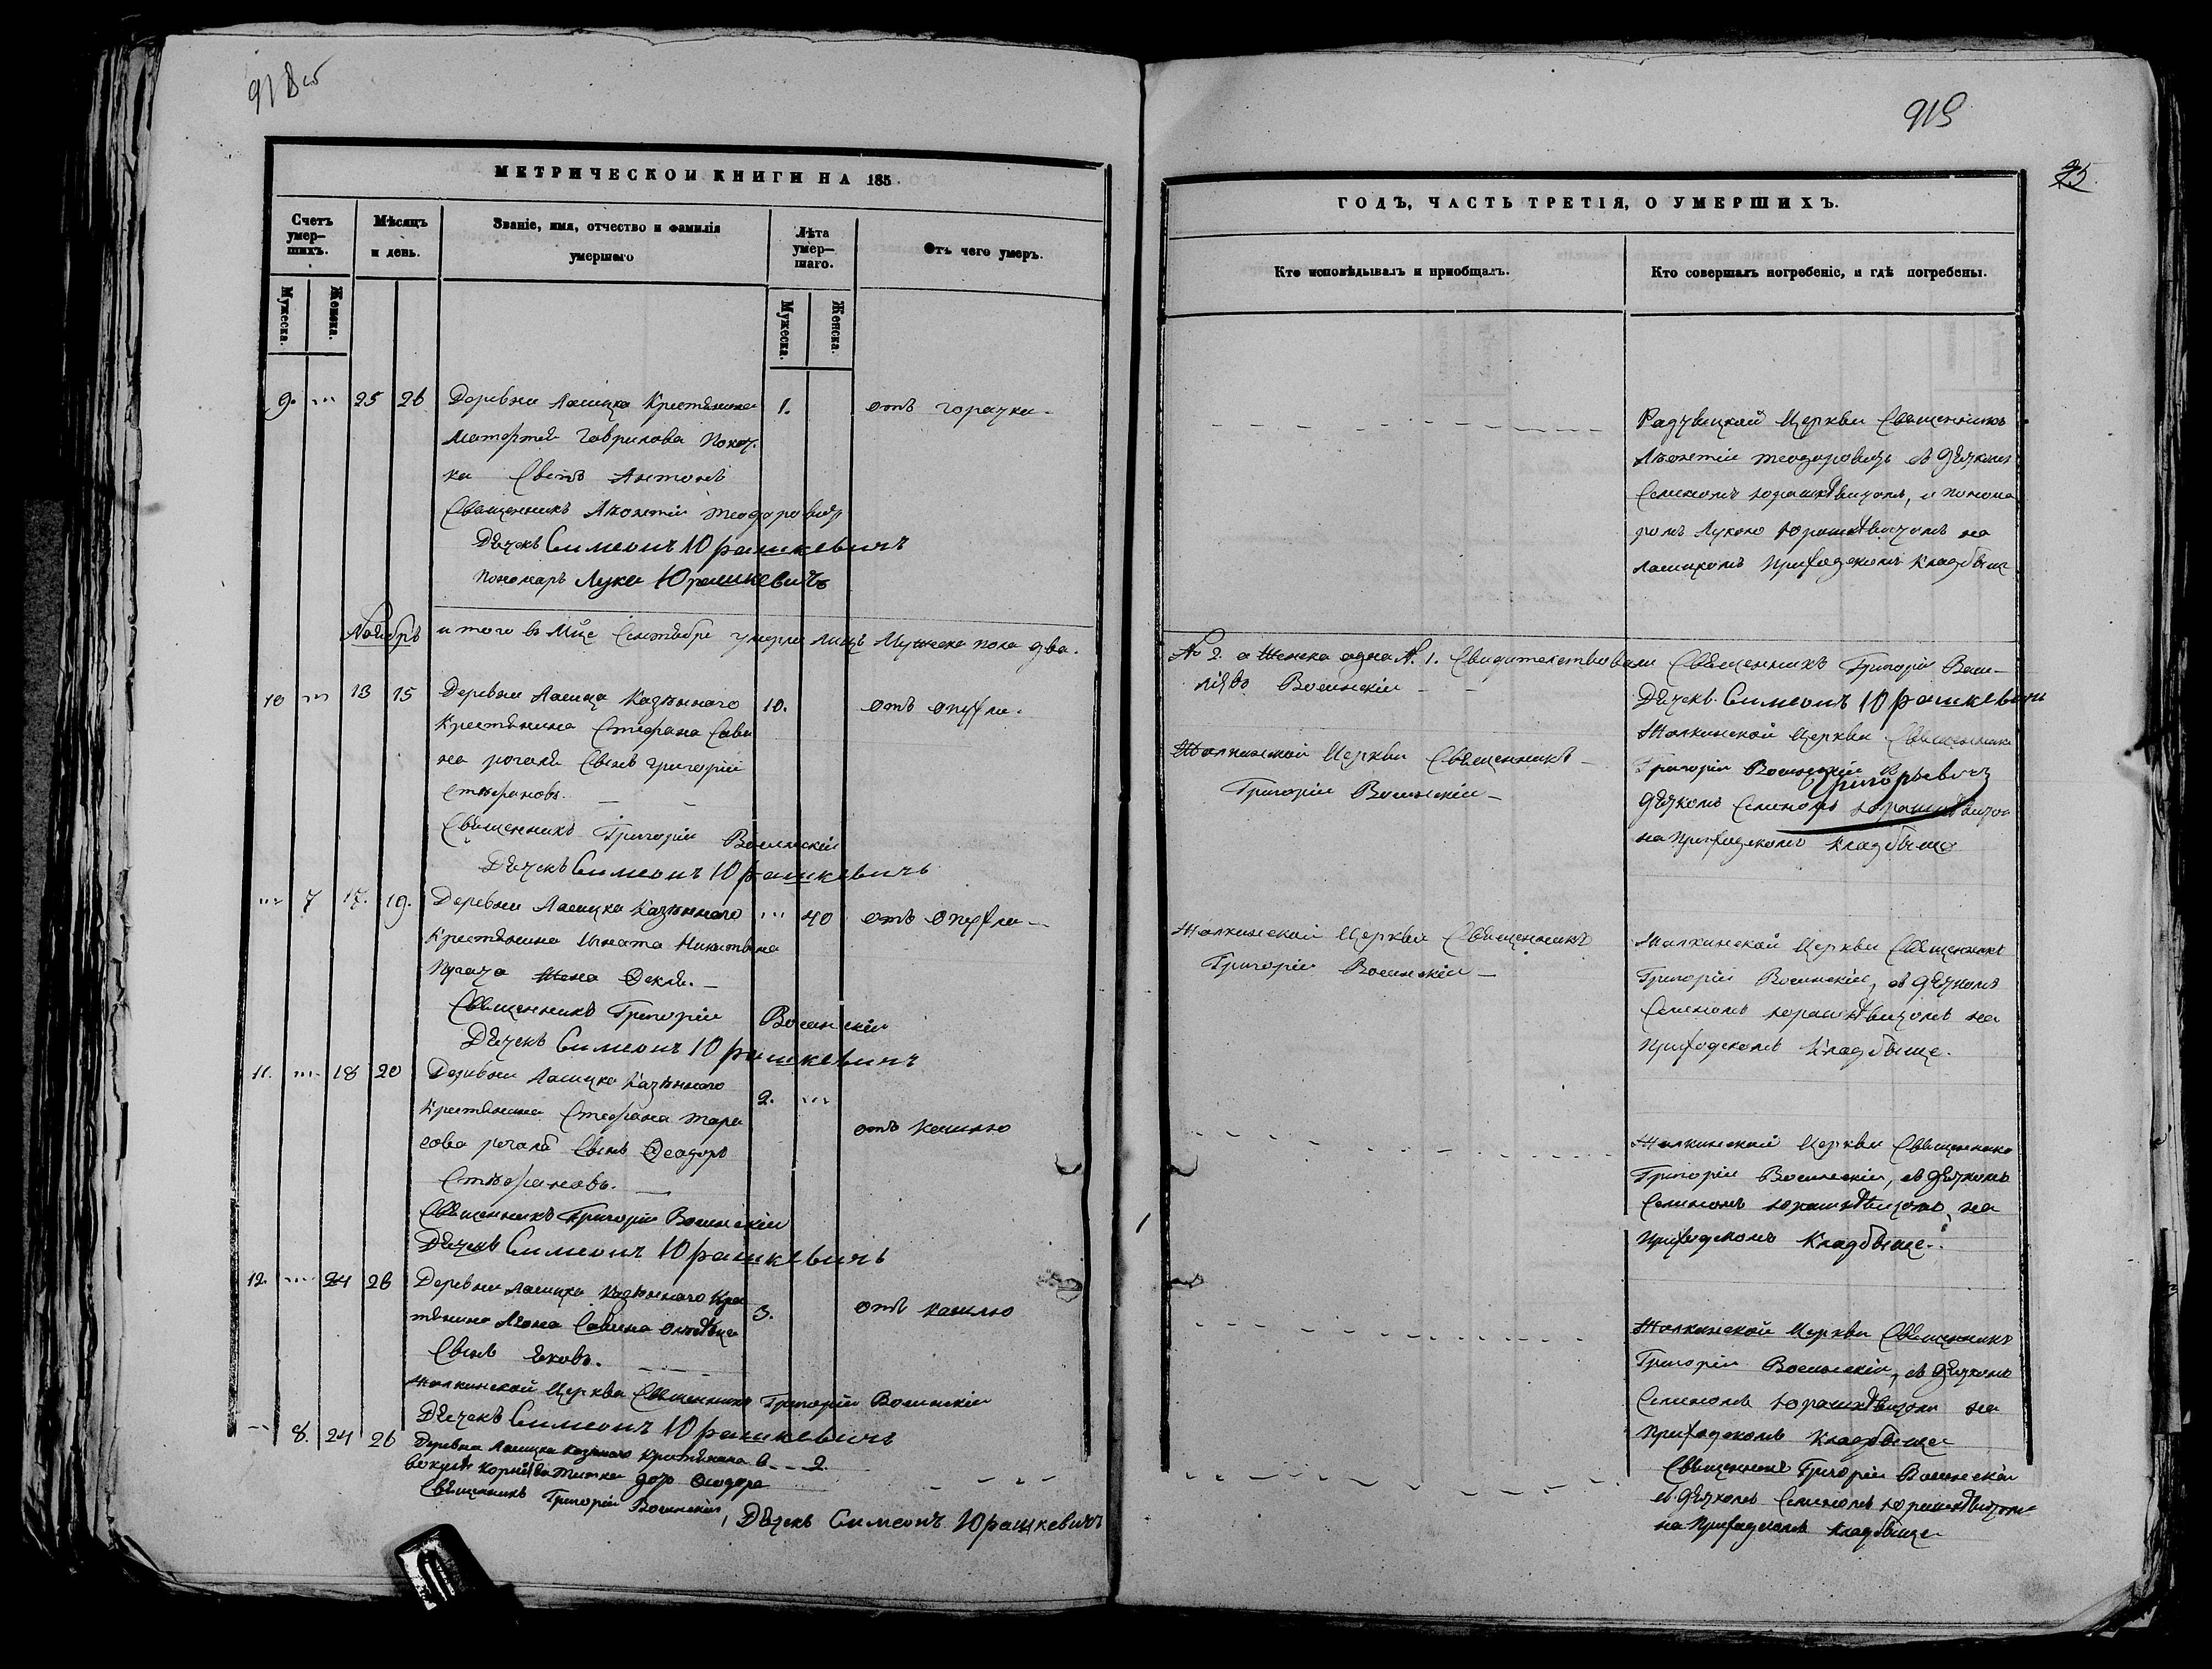 918 об
МЕТРИЧЕСКОЙ КНИГИ НА 185
Счетъ умер-шихъ.
Мѣсяцъ и день.
Званіе, имя, отчество и фамилія умершаго
Лѣта умер-шаго.
Отъ чего умеръ.
Мужеска.
Женска.
Мужеска.
Женска.
9. ... 25 26 Деревни Ласицка Крестянина 1. отъ горачки.
Матфея Гаврилова
Сынъ Антонъ
Священникъ Леонтій Теодоровичъ
Дьячекъ Симеонъ Юрашкевичъ
Пономаръ Лука Юрашкевичъ
Ноябръ
и того в Мце Сентябре умерло лицъ Мужеска пола два.
10 ... 13 15 Деревни Ласицка Казенного 10. отъ опухли.
Крестянина Стефана Сави
на Сынъ Григорій
Стефановъ.
Священникъ Григорій Волинскій
Дьячекъ Симеонъ Юрашкевичъ
... 7 17. 19. Деревни Ласицка Казенного ... 40 отъ опухли
Крестянина Игната Никитына
Жена Фекля.
Священникъ Григорій Волинскій
Дьячекъ Симеонъ Юрашкевичъ
11. ... 18 20 Деревни Ласицка Казенного 2. ...
Крестянина Стефана Тара отъ кашлю
сова Сынъ Феодоръ
Стефановъ.
Священникъ Григорій Волинскій
Дьячекъ Симеонъ Юрашкевичъ
12. ... 24 26 Деревни Ласицка Казенного Крес
тянина Леона Савина 3. отъ кашлю
Сынъ Яковъ.
Церкви Священникъ Григорій Волинскій
Дьячекъ Симеонъ Юрашкевичъ
... 8. 24 26 Деревни Ласицка Казеного Крестянина 2.
дочъ Феодора
Священникъ Григорій Волинскій, Дьячекъ Симеонъ Юрашкевичъ
919
25.
ГОДЪ, ЧАСТЬ ТРЕТІЯ, О УМЕРШИХЪ.
Кто исповѣдывалъ и приобщалъ.
Кто совершалъ погребеніе, и гдѣ погребены.
Церкви Священникъ
Леонтій Теодоровичъ съ дьячкомъ
Семиономъ Юрашкевичомъ, и понома
ромъ Лукою Юрашкевичомъ на
Приходскомъ Кладбыще
№ 2. а Женска одна №. 1. Свидителствовали Священникъ Григорій
Волинскій
Дьячекъ Симеонъ Юрашкевичъ
Церкви Священникъ
Григорій Волинскій
Церкви Священникъ
Григорій Волинскій
Григорьевичъ
дьячкомъ Семиономъ Юрашкевичом
на Приходскомъ Кладбыще
Церкви Священникъ
Григорій Волинскій
Церкви Священникъ
Григорій Волинскій, съ дьячкомъ
Семиономъ Юрашкевичомъ на
Приходскомъ Кладбыще.
Церкви Священникъ
Григорій Волинскій, съ дьячкомъ
Семиономъ Юрашкевичомъ, на
Приходскомъ Кладбыще.
Церкви Священникъ
Григорій Волинскій, съ дьячкомъ
Семиономъ Юрашкевичомъ на
Приходскомъ Кладбыще
Священникъ Григорій Волинскій
съ дьячкомъ Семиономъ Юрашкевичомъ
на Приходскомъ Кладбыще